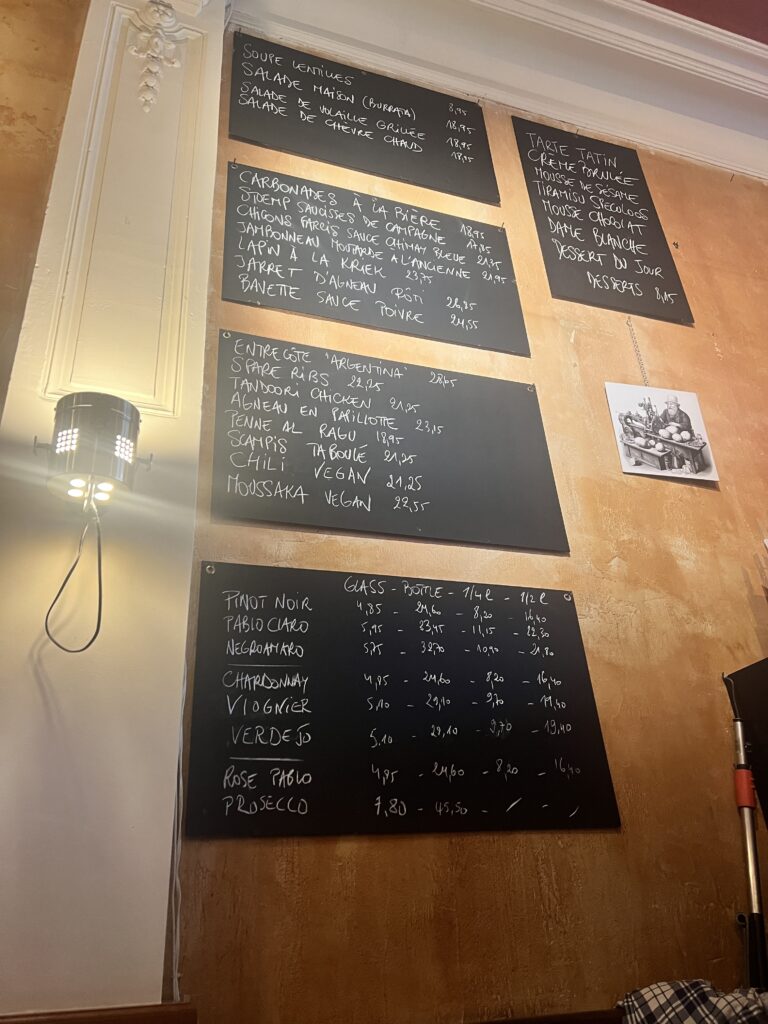 SOUPE LENTILLES 8,95
SALADE MAISON (BURRATA) 18,95
SALADE DE VOLAILLE GRILLÉE 18,95
SALADE DE CHÈVRE CHAUD 18,95
CARBONADES À LA BIÈRE 18,95
STOEMP SAUCISSES DE CAMPAGNE
CHICONS FARCIS SAUCE CHIMAY BLEUE 21,35
JAMBONNEAU MOUTARDE A L'ANCIENNE 21,95
LAPIN À LA KRIEK 23,75
JARRET D'AGNEAU RÔTI 26,85
BAVETTE SAUCE POIVRE 24,55
ENTRECÔTE "ARGENTINA"
SPARE RIBS 22,25
TANDOORI CHICKEN 21,25
AGNEAU EN PAPILLOTTE 23,15
PENNE AL RAGU 18,95
SCAMPIS TABOULE 21,25
CHILI VEGAN 21,25
MOUSSAKA VEGAN 22,55
TARTE TATIN
CRÈME BRULÉE
MOUSSE DE SESAME
TIRAMISU SPECULOOS
MOUSSE CHOCOLAT
DAME BLANCHE
DESSERT DU JOUR
DESSERTS 8,15
GLASS - BOTTLE - 1/4 l - 1/2 l
PINOT NOIR 4,85 - 24,60 - 8,20 - 16,40
PABLO CLARO 5,95 - 33,45 - 11,15 - 22,30
NEGROAMARO 5,75 - - 10,90 - 21,80
CHARDONNAY 4,85 - 24,60 - 8,20 - 16,40
VIOGNIER 5,10 - 29,10 - 9,70 -
VERDEJO 5,10 - 29,10 - 9,70 - 19,40
ROSE PABLO 4,85 - 24,60 - 8,20 - 16,40
PROSECCO 7,80 - 45,50 - / - /